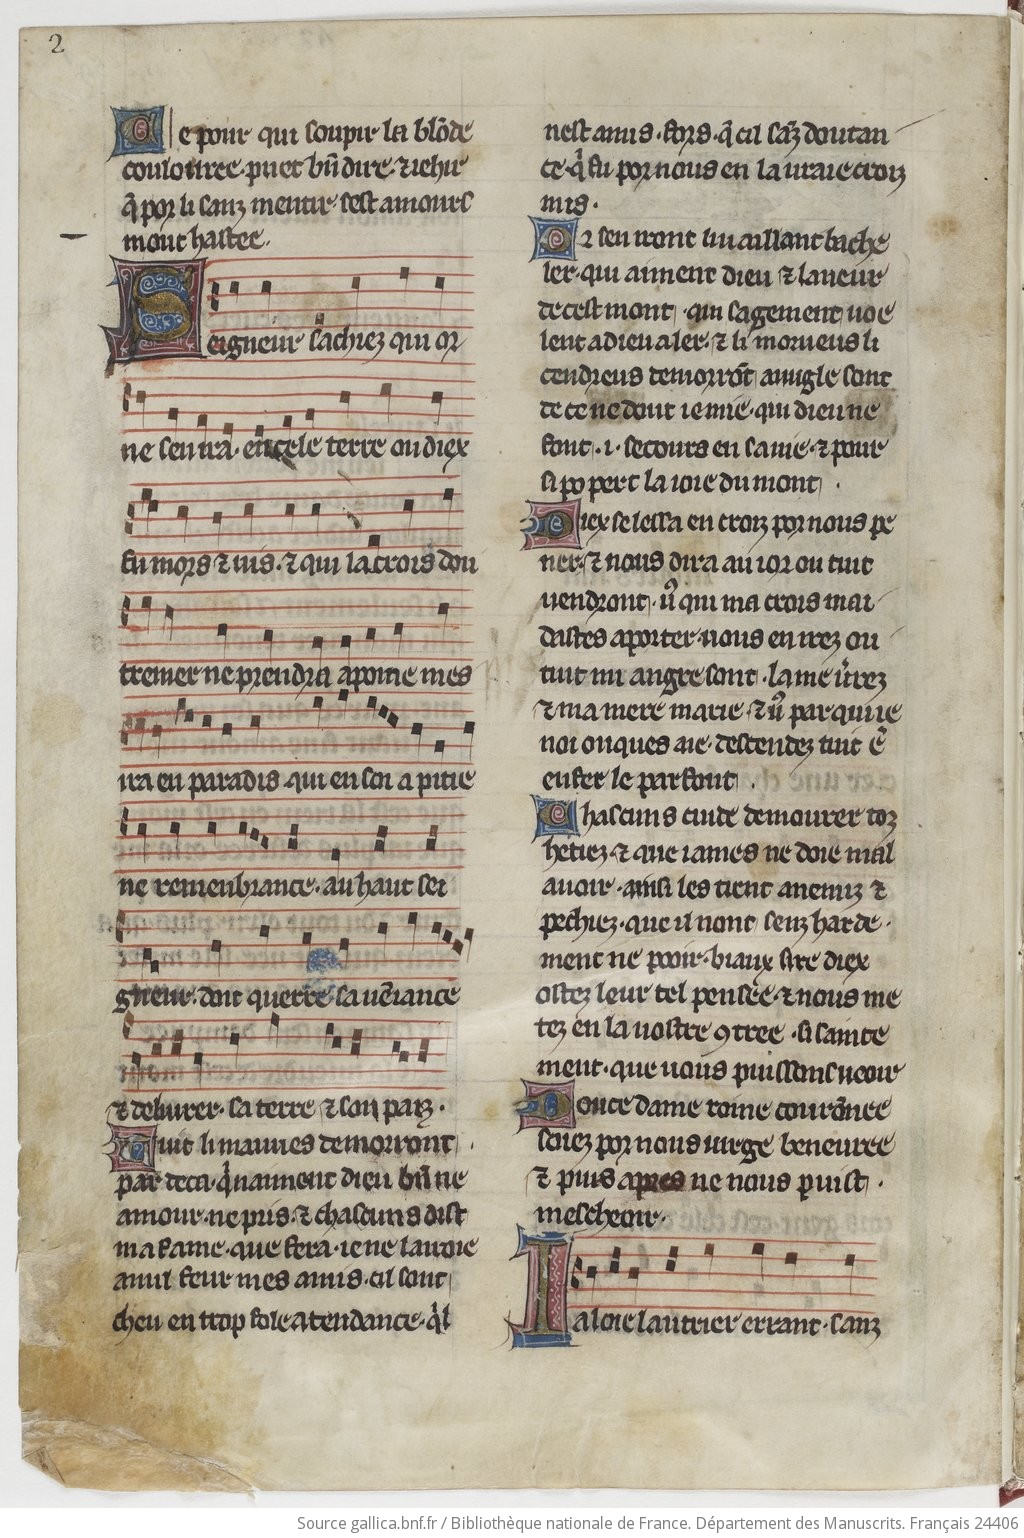 2
Ce pour qui soupir la blōde
coulouree. puet bn̄ dire. ⁊ iehir
q̄ por li sanz mentir sest amours
mout hastee.
Seigneur sachiez qui or
ne sen ira. en cele terre ou diex
fu mors ⁊ uis. ⁊ qui la crois dou
tremer ne prendra a poine mes
ira en paradis. qui en soi a pitie
ne remenbrance. au haut sei
gneur. doit querre sa uēiance
⁊ deliurer. sa terre ⁊ son païz.
Tuit li mauues demorront
par deca. q̇ naiment dieu bn̄ ne
amour. ne pris. ⁊ chascuns dist
ma fame. que fera. ie ne lairoie
a nul feur mes amis. cil sont
cheu en trop fole atendance. q̇l
nest amis. fors. q̄ cil sāz doutan
ce. q̇ fu por nous en la uraie croiz
mis.
Or sen iront li uaillant bache
ler. qui aiment dieu ⁊ laneur
de cest mont. qui sagement uoe
lent a dieu aler. ⁊ li morueus li
cendreus demorrōt auugle sont
de ce ne dout ie mie. qui dieu ne
font .i. secours en sa uie. ⁊ pour
si po pert la ioie du mont.
Diex se lessa en croiz por nous pe
ner. ⁊ nous dira au ior ou tuit
uendront. u᷒ qui ma crois mai
dastes a porter. uous en irez ou
tuit mi angre sont. la me u᷒rez
⁊ ma mere marie. ⁊ u᷒ par qui ie
noi onques aie. descendez tuit ē
enfer le parfont.
Chascuns cuide demourer toz
hetiez. ⁊ que iames ne doie mal
auoir. ainsi les tient anemiz ⁊
pechiez. que il nont senz harde
ment ne pooir. biaux sire diex
ostez leur tel pensee. ⁊ nous me
tez en la uostre 9tree. si sainte
ment. que uous puissons ueoir
Douce dame roine courōnee
soiez por nous uirge beneuree
⁊ puis apres ne nous puist.
mescheoir.
Ialoie lautrier errant. sanz
Source gallica.bnf.fr / Bibliothèque nationale de France. Département des Manuscrits. Français 24406